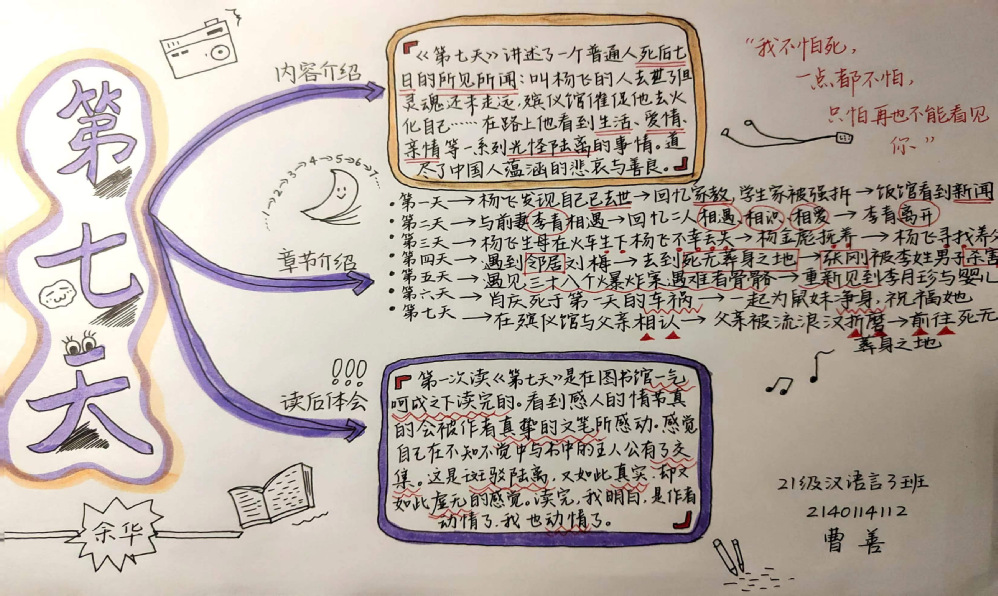 第七天
余华
内容介绍
《第七天》讲述了一个普通人死后七
日的所见所闻：叫杨飞的人去世了但
灵魂还未走远，殡仪馆催促他去火
化自己……在路上他看到生活、爱情、
亲情等一系列光怪陆离的事情。道
尽了中国人蕴涵的悲哀与善良。
"我不怕死，
一点都不怕，
只怕再也不能看见
你。"
...1→2→3→4→5→6→7...
章节介绍
·第一天→杨飞发现自己已去世→回忆家教，学生家被强拆→饭馆看到新闻
·第二天→与前妻李青相遇→回忆二人相遇、相识、相爱→李青离开
·第三天→杨飞生母在火车生下杨飞不幸丢失→杨金彪抚养→杨飞寻找养父
·第四天→遇到邻居刘梅→去到死无葬身之地→张刚被李姓男子杀害
·第五天→遇见三十八个火爆炸案遇难者骨骼→重新见到李月珍与婴儿
·第六天→肖庆死于第一天的车祸→一起为鼠妹净身，祝福她
·第七天→在殡仪馆与父亲相认→父亲被流浪汉折磨→前往死无
葬身之地
读后体会
第一次读《第七天》是在图书馆一气
呵成之下读完的。看到感人的情节真
的会被作者真挚的文笔所感动。感觉
自己在不知不觉中与书中的主人公有了交
集。这是斑驳陆离，又如此真实，却又
如此虚无的感觉。读完，我明白，是作者
动情了，我也动情了。
21级汉语言3班
2140114112
曹善